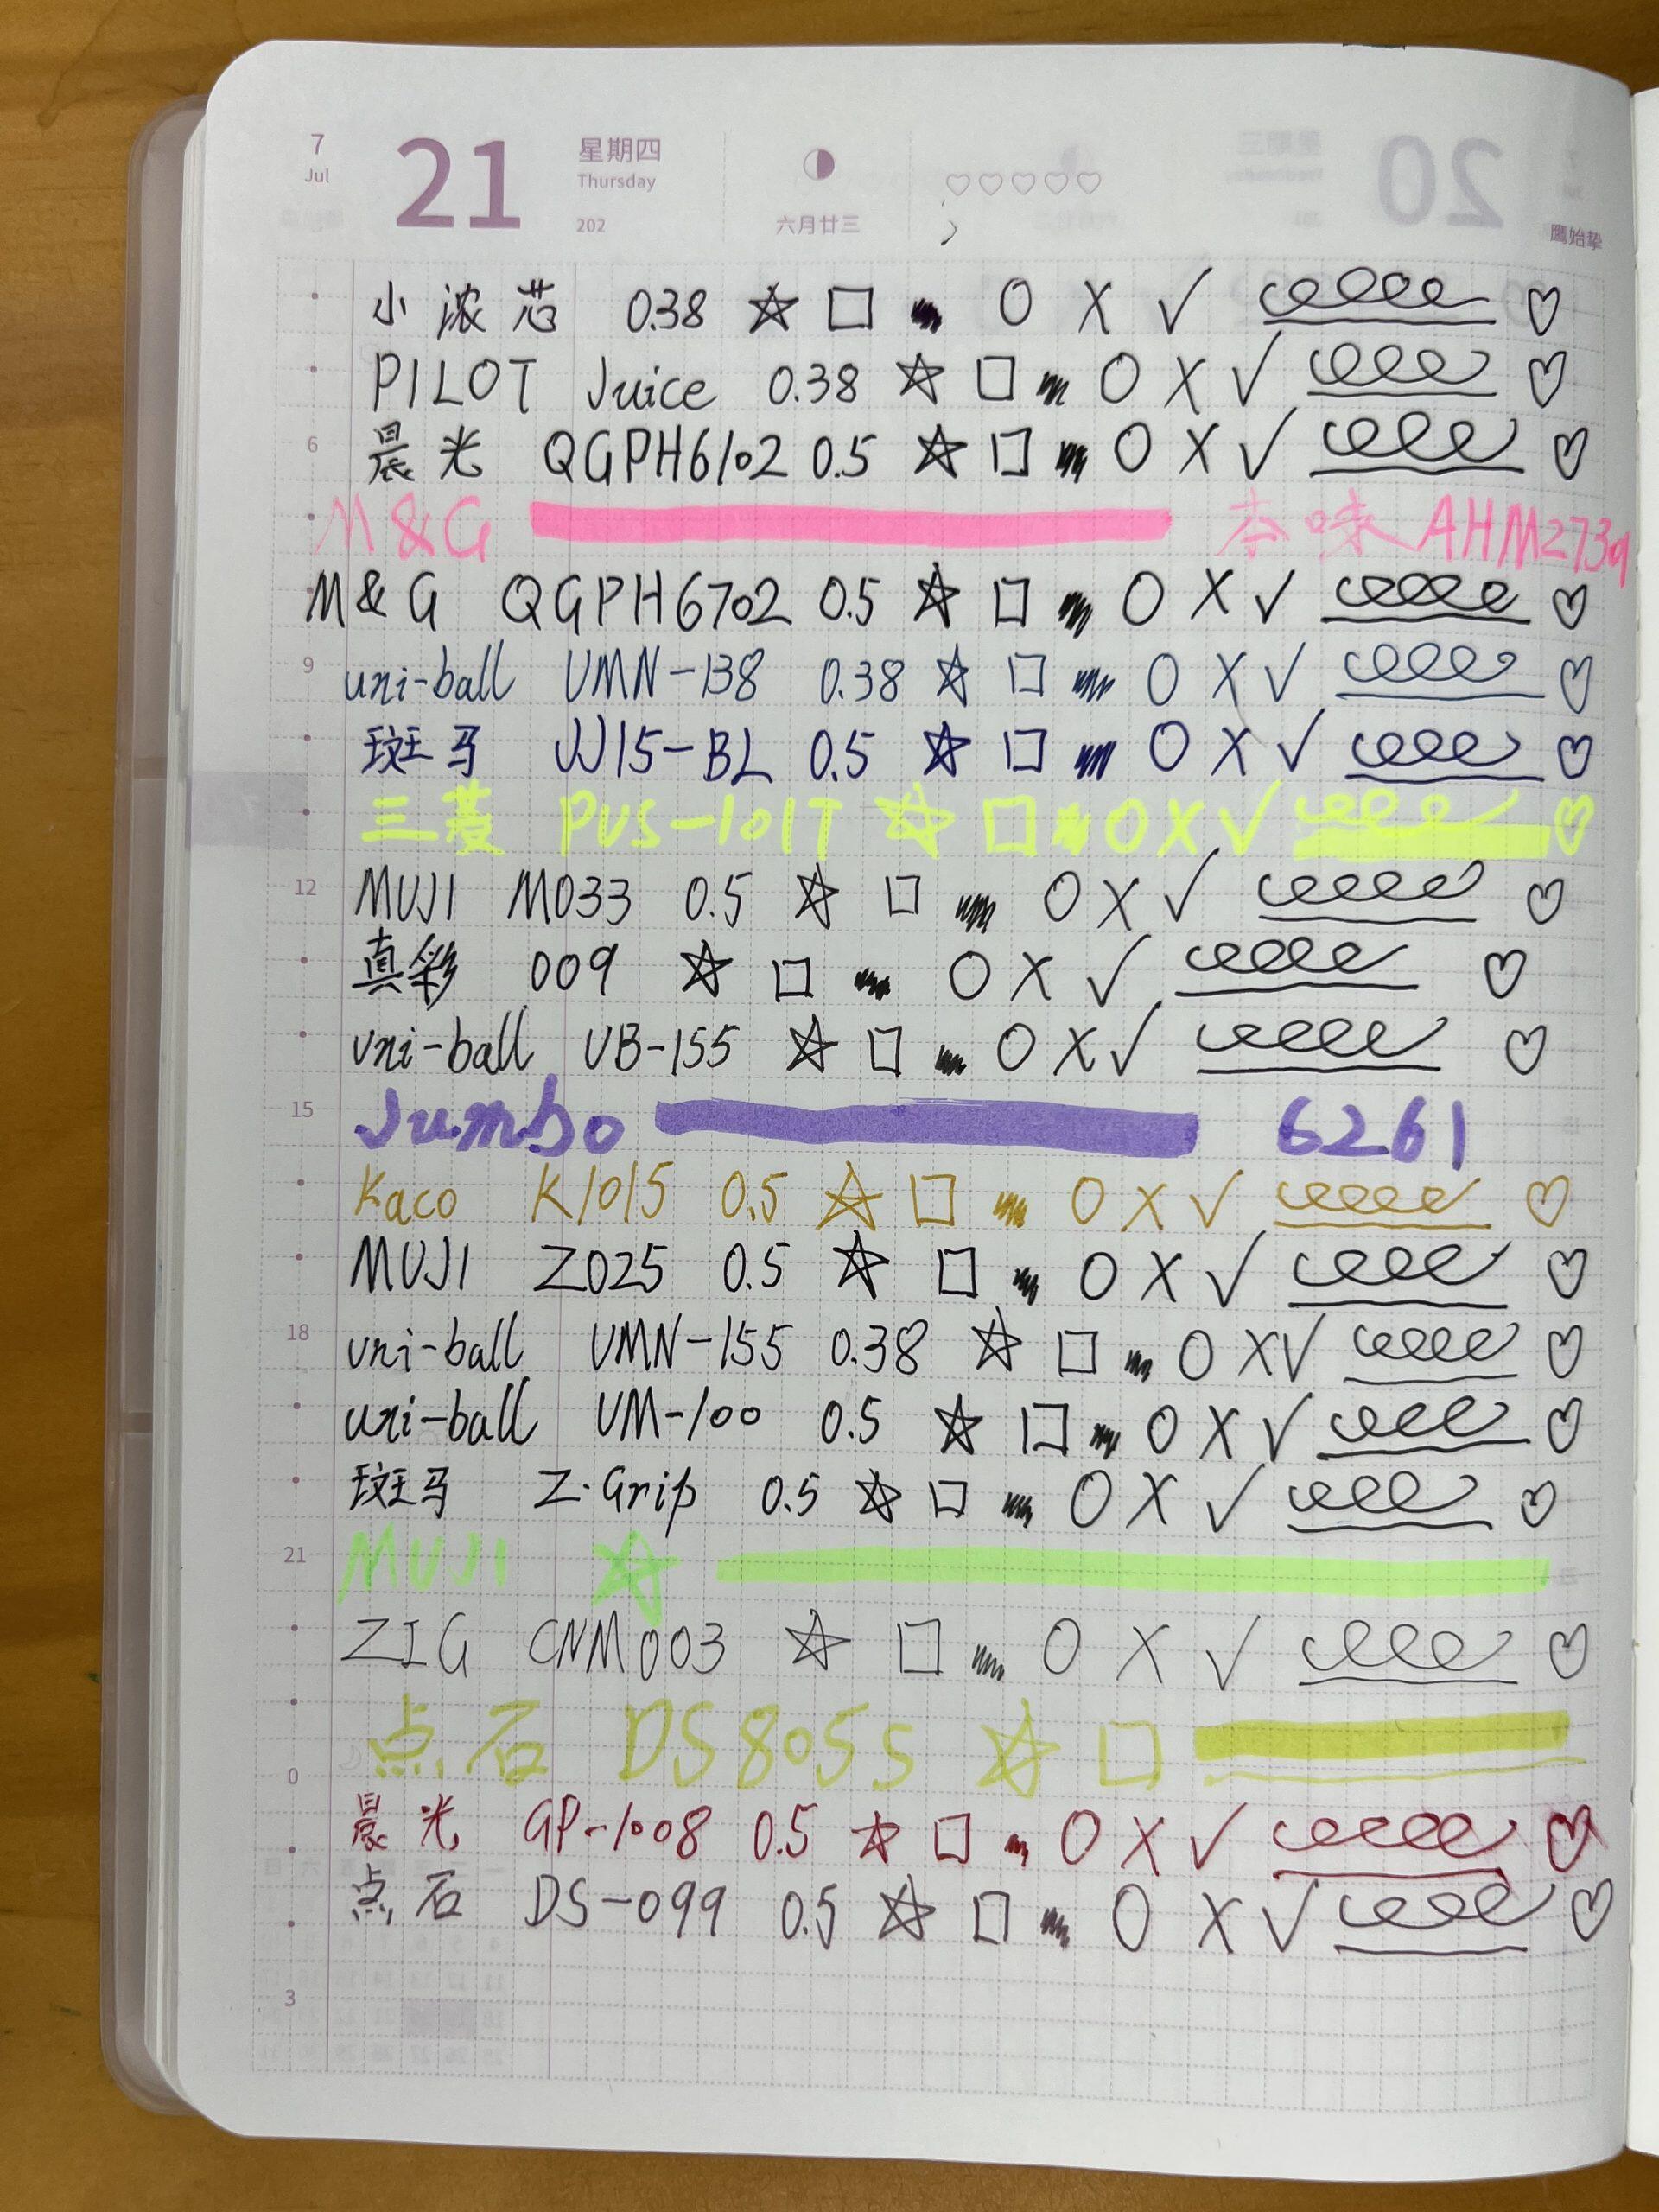 7 21 星期四
Jul Thursday
202 六月廿三
鷹始摯
小浓芯 0.38
PILOT Juice 0.38
6 晨光 QGPH6102 0.5
M&G 本味 AHM2739
M&G QGPH6702 0.5
9 uni-ball UMN-138 0.38
斑马 JJ15-BL 0.5
三菱 PUS-101T
12 MUJI M033 0.5
真彩 009
uni-ball UB-155
15 Jumbo 6261
Kaco K1015 0.5
MUJI Z025 0.5
18 uni-ball UMN-155 0.38
uni-ball UM-100 0.5
斑马 Z·Grip 0.5
21 MUJI
ZIG CNM003
0 点石 DS8055
晨光 GP-1008 0.5
点石 DS-099 0.5
3